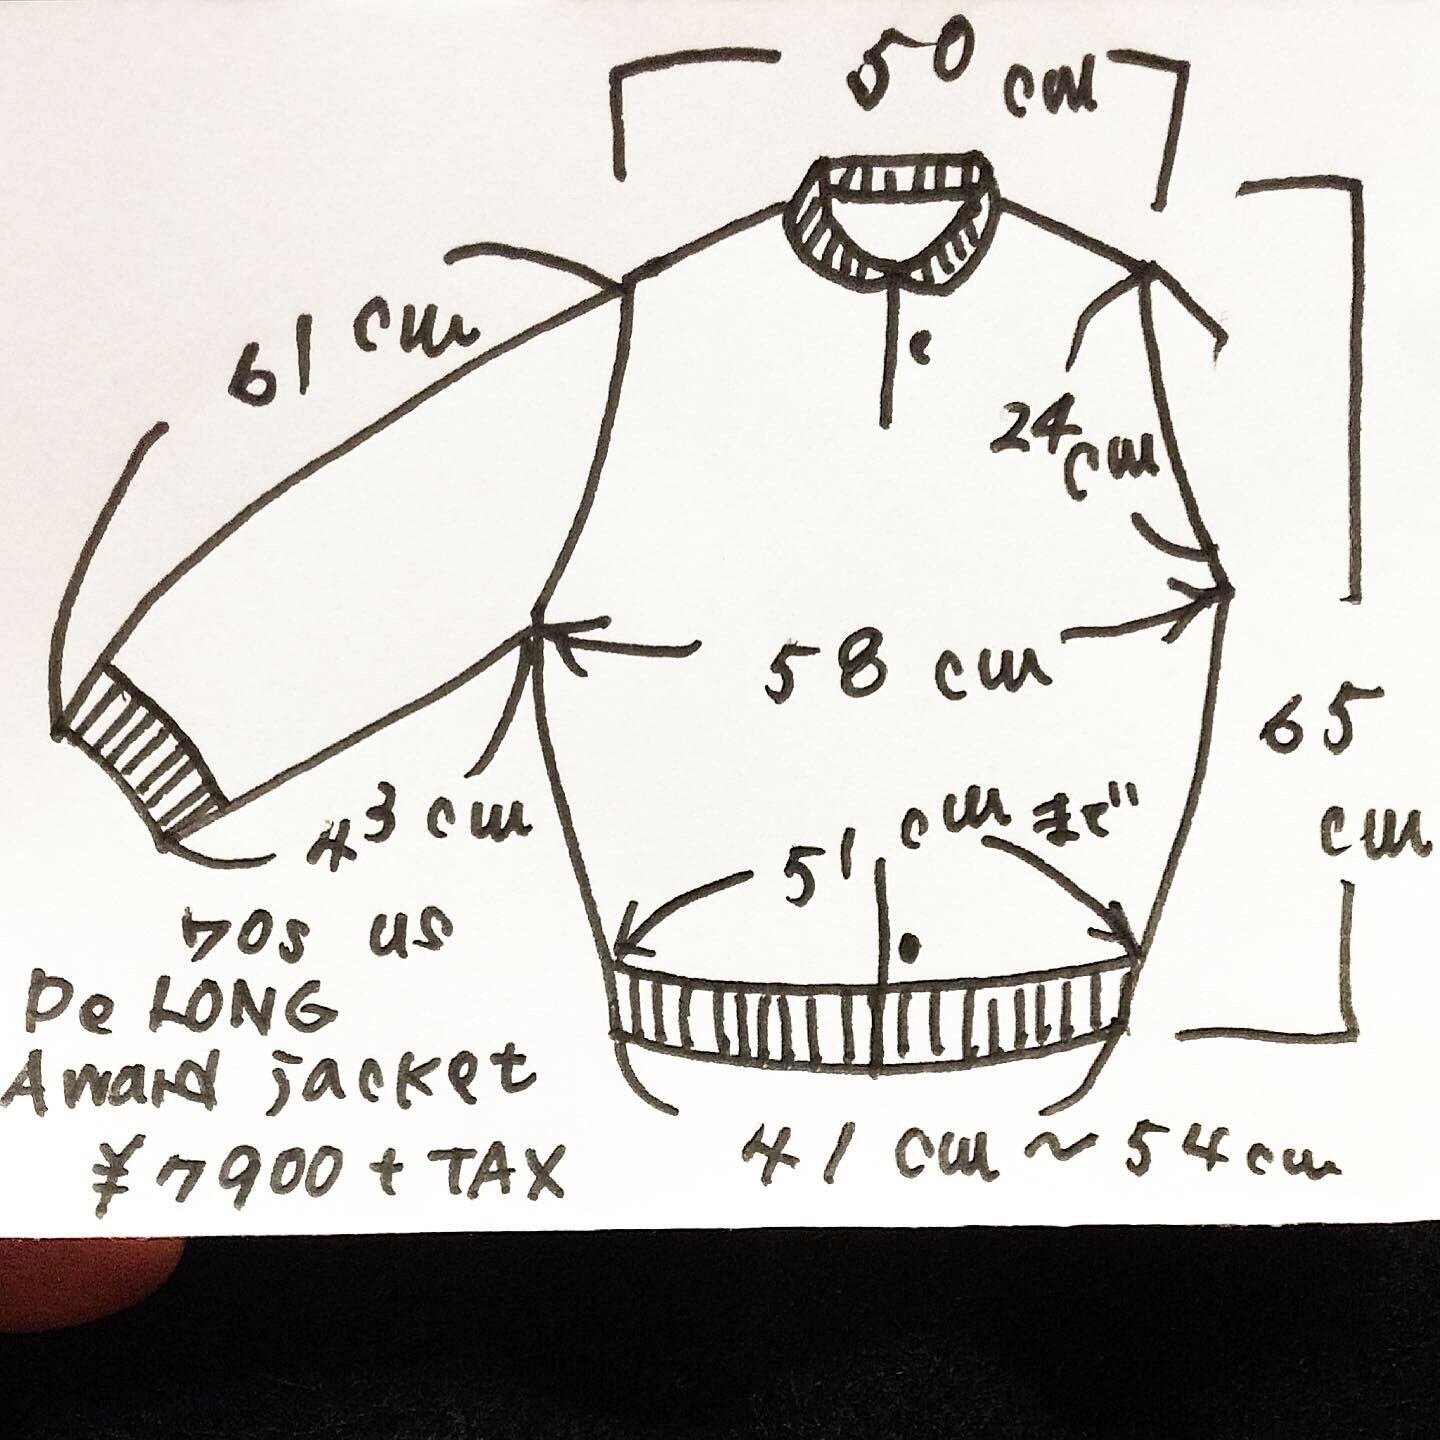 50 cm
61 cm
24 cm
58 cm
65 cm
43 cm
51 cm まで
70s US
De LONG
Award jacket
¥7900 + TAX
41 cm ~ 54cm